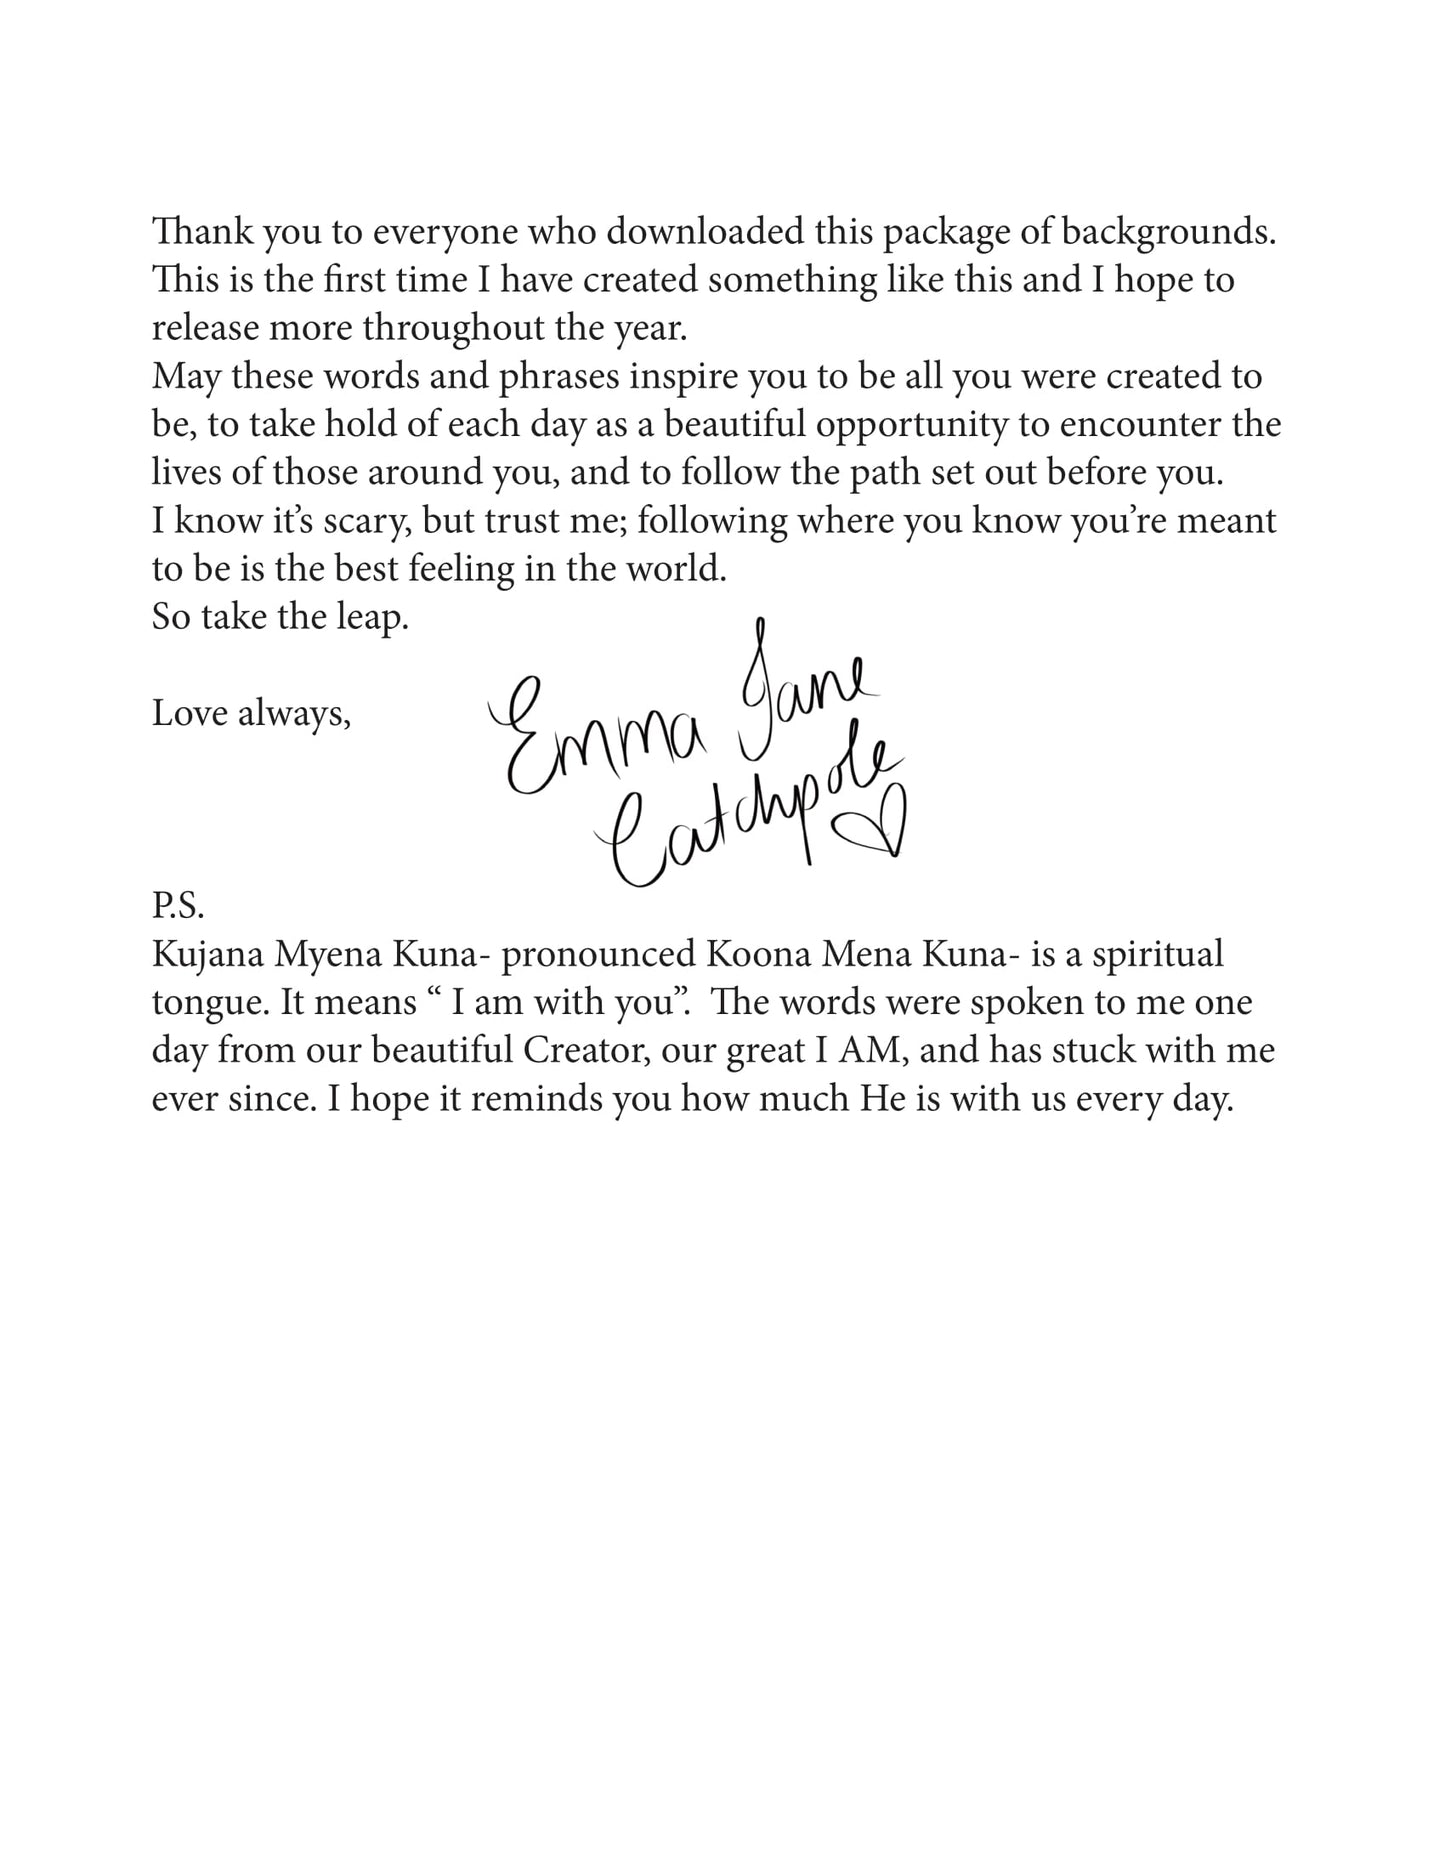 Thank you to everyone who downloaded this package of backgrounds.
This is the first time I have created something like this and I hope to
release more throughout the year.
May these words and phrases inspire you to be all you were created to
be, to take hold of each day as a beautiful opportunity to encounter the
lives of those around you, and to follow the path set out before you.
I know it’s scary, but trust me; following where you know you’re meant
to be is the best feeling in the world.
So take the leap.
Love always,
Emma Jane
Catchpole
P.S.
Kujana Myena Kuna- pronounced Koona Mena Kuna- is a spiritual
tongue. It means “ I am with you”.  The words were spoken to me one
day from our beautiful Creator, our great I AM, and has stuck with me
ever since. I hope it reminds you how much He is with us every day.